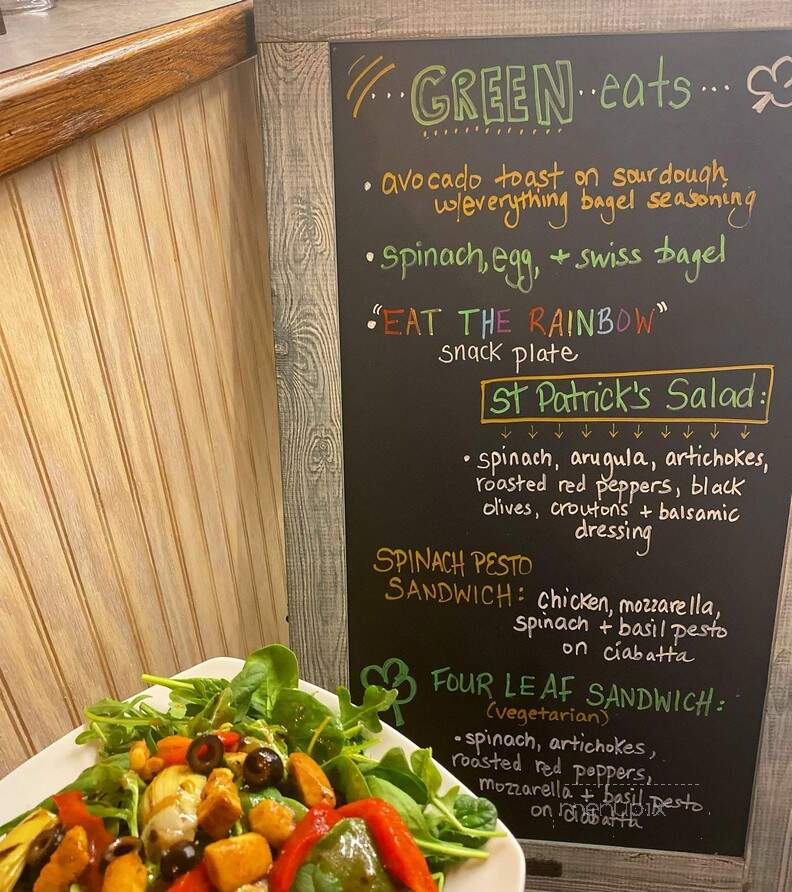 GREEN eats
• avocado toast on sourdough
w/everything bagel seasoning
• spinach, egg, + swiss bagel
• "EAT THE RAINBOW"
snack plate
St Patrick's Salad:
• spinach, arugula, artichokes,
roasted red peppers, black
olives, croutons + balsamic
dressing
SPINACH PESTO
SANDWICH:
Chicken, mozzarella,
spinach + basil pesto
on ciabatta
FOUR LEAF SANDWICH:
(vegetarian)
• spinach, artichokes,
roasted red peppers,
mozzarella + basil pesto
on ciabatta
menupix